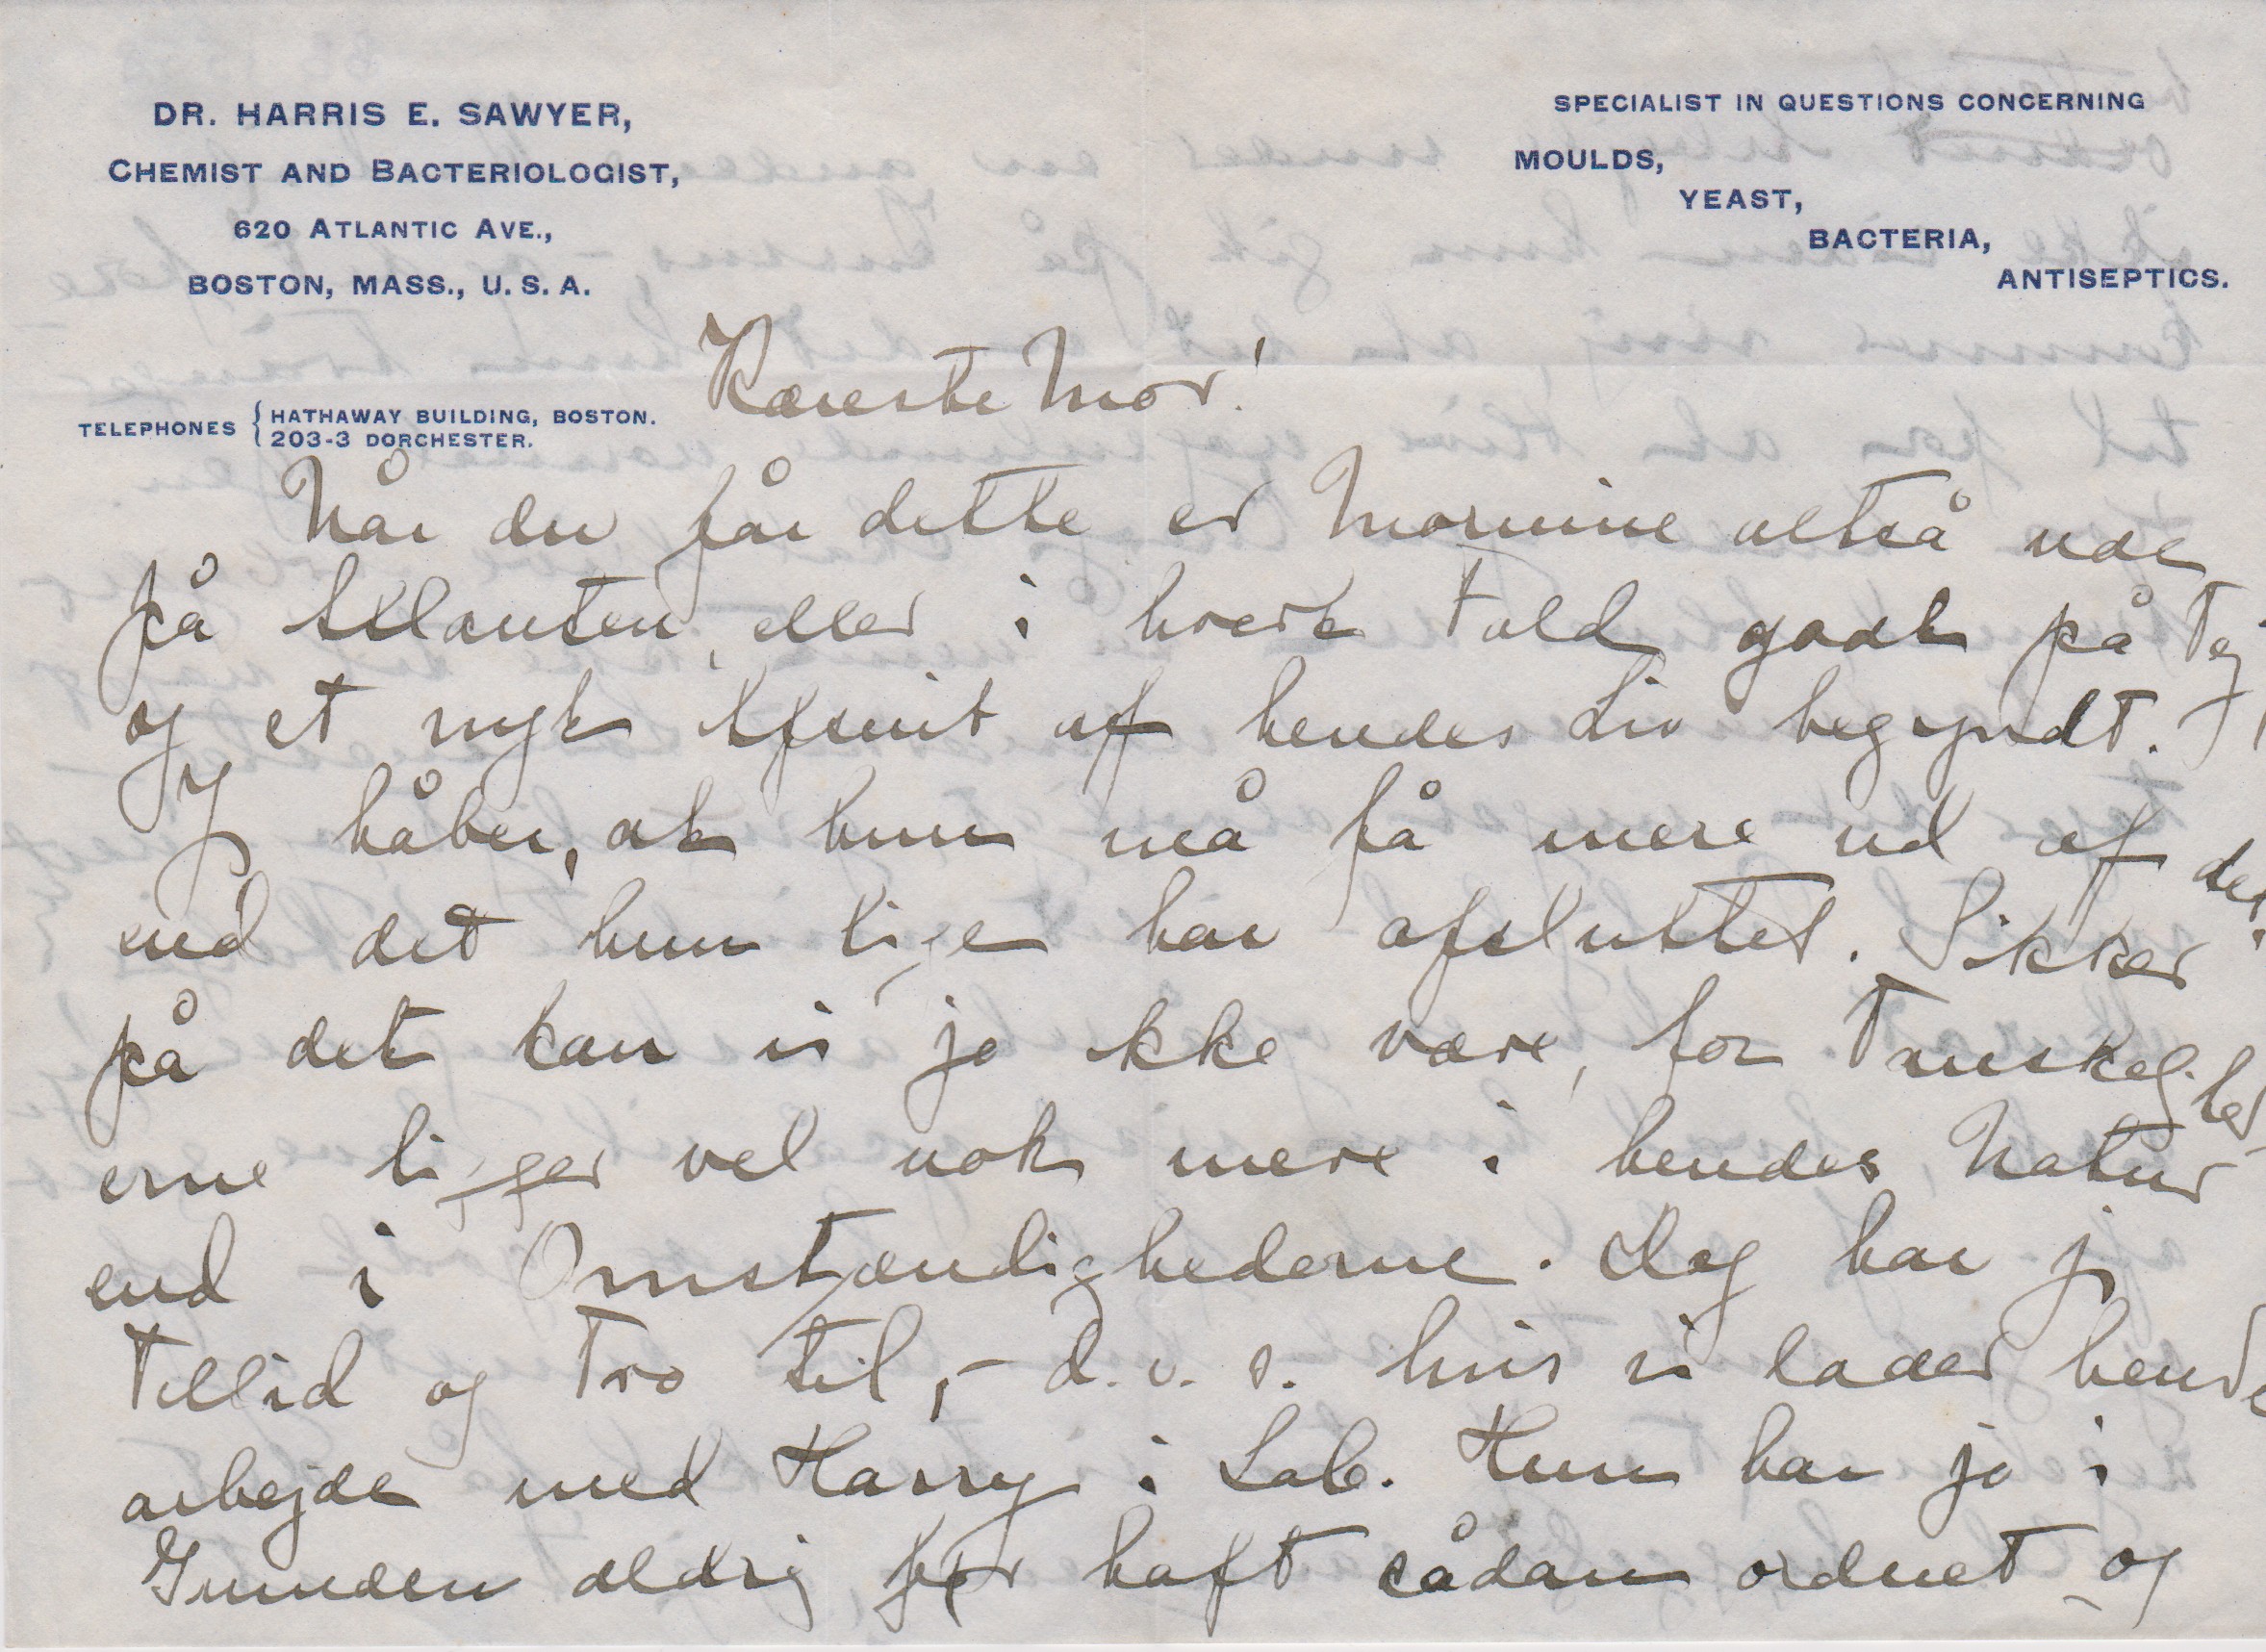 DR. HARRIS E. SAWYER,
CHEMIST AND BACTERIOLOGIST,
620 ATLANTIC AVE.,
BOSTON, MASS., U. S. A.
SPECIALIST IN QUESTIONS CONCERNING
MOULDS,
YEAST,
BACTERIA,
ANTISEPTICS.
TELEPHONES { HATHAWAY BUILDING, BOSTON.
203-3 DORCHESTER.
Kæreste Mor!
Når du får dette er Mornine altså ude
på Atlanten, eller i hvert Fald godt på Vej
og et nyt Afsnit af hendes Liv begyndt.
Jeg håber, at hun må få mere ud af det,
end det hun lige har afsluttet. Sikker
på det kan vi jo ikke være, for Vanskelighed-
erne ligger vel nok mere i hendes Natur
end i Omstændighederne. Dog har jeg
Tillid og Tro til, - d.v.s. hvis vi lader hende
arbejde med Harry i Lab. Hun har jo i
Grunden aldrig før haft sådan ordnet og